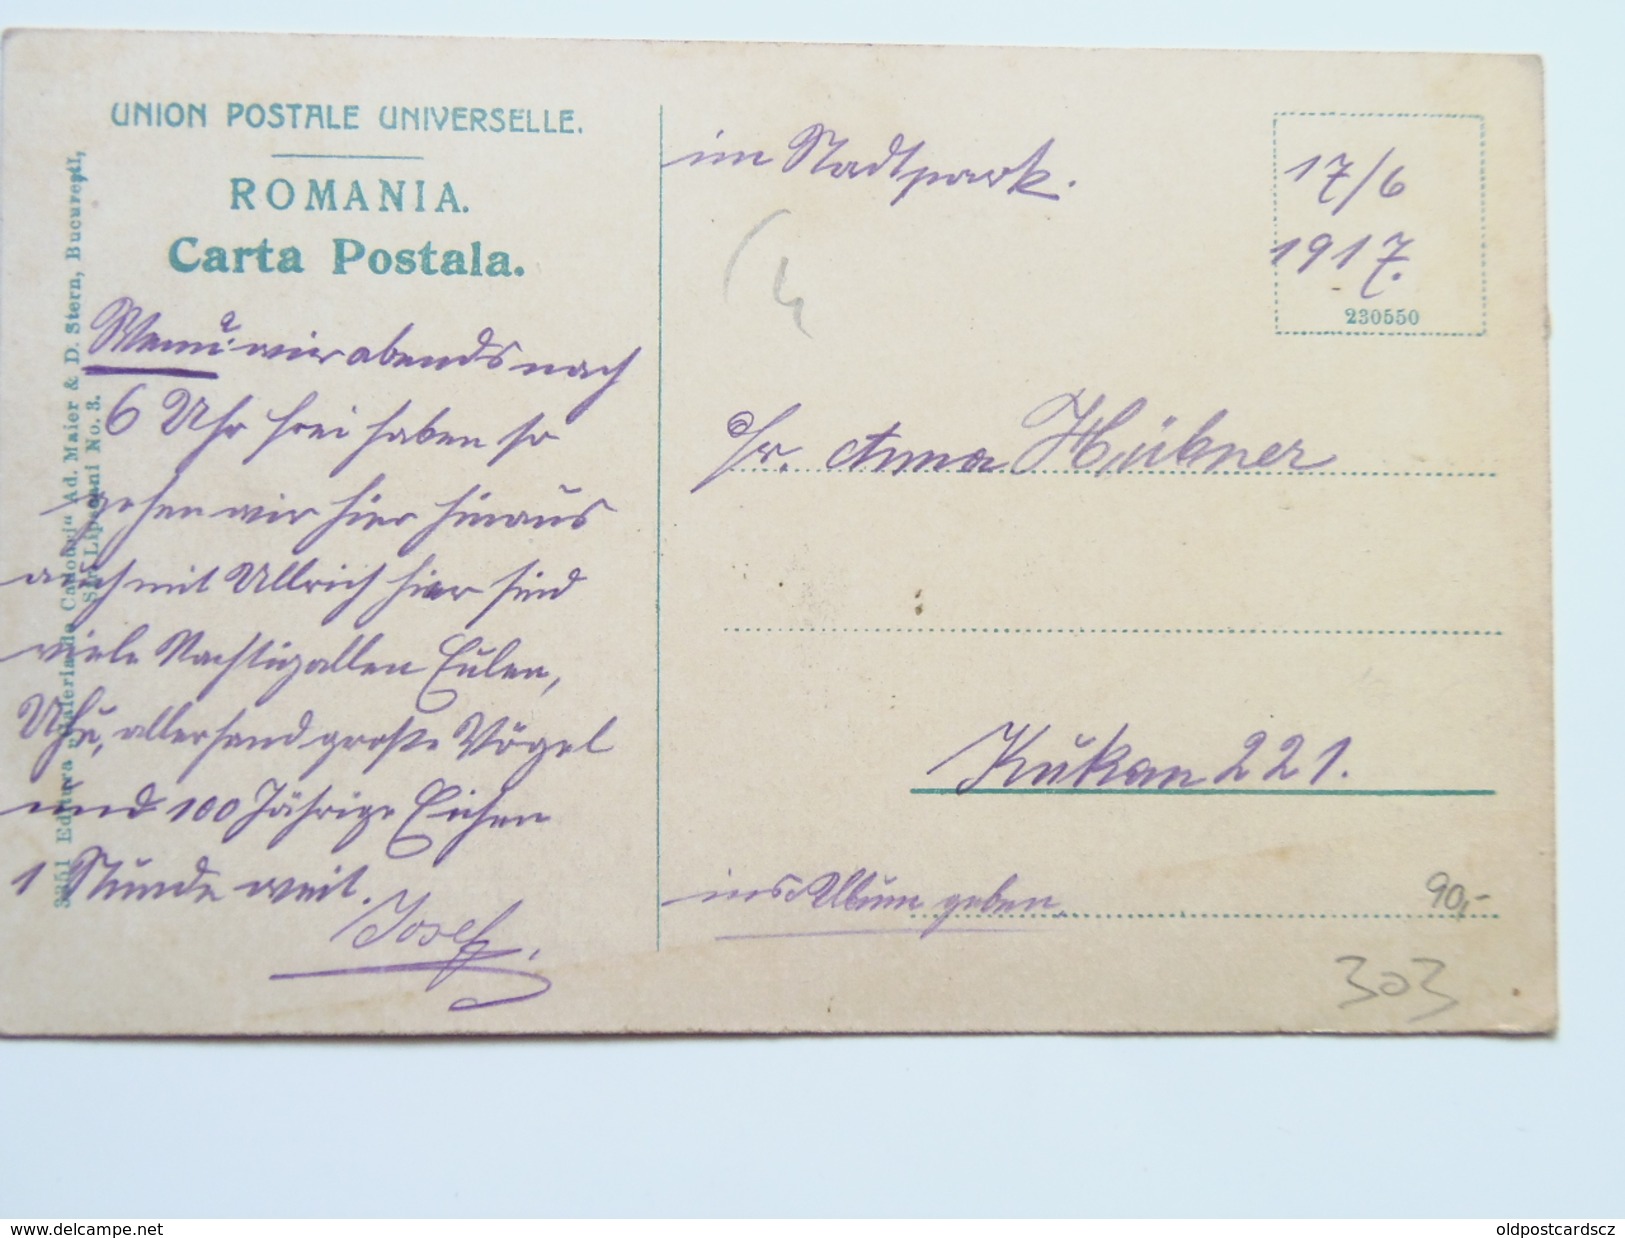 UNION POSTALE UNIVERSELLE.
ROMANIA.
Carta Postala.
3251 Editura Ad. Maier & D. Stern, Bucureşti,
No. 3.
Wenn wir abends nach
6 Uhr frei haben so
gehen wir hier hinaus
auch mit Ullrich hier sind
viele Nachtigallen Eulen,
Uhu, allerhand große Vögel
und 100 Jährige Eichen
1 Stunde weit.
Josef.
im Stadtpark.
17/6
1917.
230550
Fr. Anna Hübner
Kukan 221.
ins Album geben.
90,-
303
oldpostcards.delcampe.net
oldpostcardscz